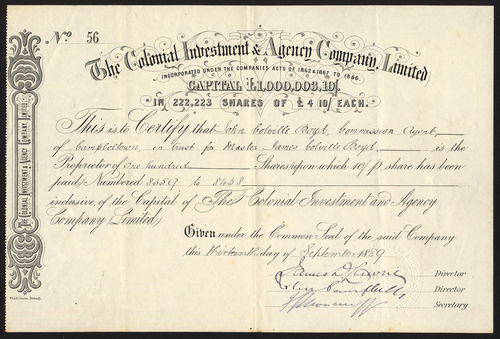 No 56
The Colonial Investment & Agency Company, Limited
INCORPORATED UNDER THE COMPANIES ACTS OF 1862 & 1867 TO 1886.
CAPITAL £1,000,003,10/
IN 222,223 SHARES OF £4 10/ EACH.
This is to Certify that John Colville Boyd, Commission Agent,
of Campbeltown, in trust for Master James Colville Boyd, is the
Proprietor of One hundred Shares upon which 10/ p share has been
paid, Numbered 8359 to 8458
inclusive, of the Capital of The Colonial Investment and Agency
Company Limited
Given under the Common Seal of the said Company
this thirteenth day of September 1889
Director
John Campbell Director
Secretary
THE COLONIAL INVESTMENT & AGENCY COMPANY LIMITED